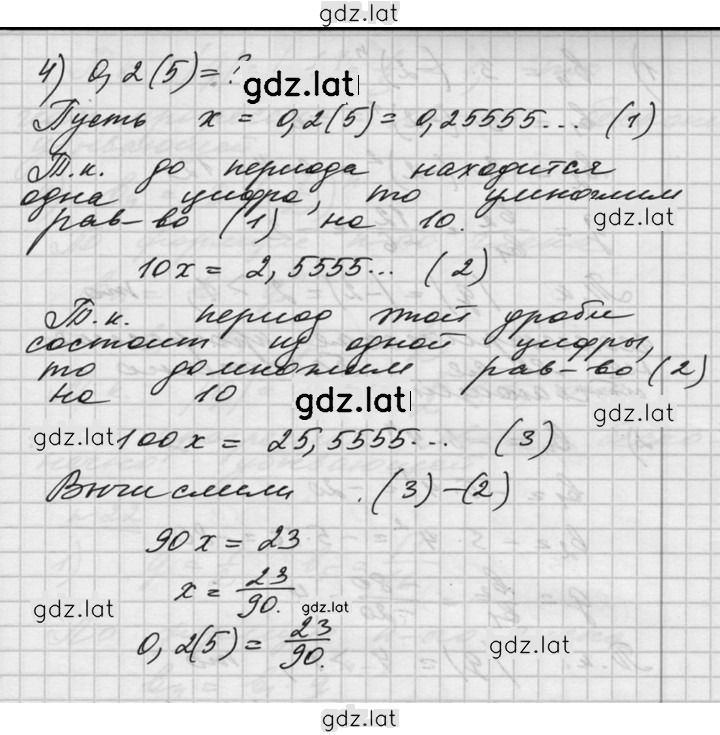 gdz.lat
4) 0,2(5)=?
gdz.lat
Пусть x = 0,2(5) = 0,25555... (1)
Т.к. до периода находится
одна цифра, то умножим
рав-во (1) на 10.
gdz.lat
10x = 2,5555... (2)
Т.к. период этой дроби
состоит из одной цифры,
то домножим рав-во (2)
на 10
gdz.lat
gdz.lat
gdz.lat 100x = 25,5555... (3)
Вычислим (3)-(2)
90x = 23
x = 23/90.
gdz.lat
gdz.lat
0,2(5) = 23/90.
gdz.lat
gdz.lat